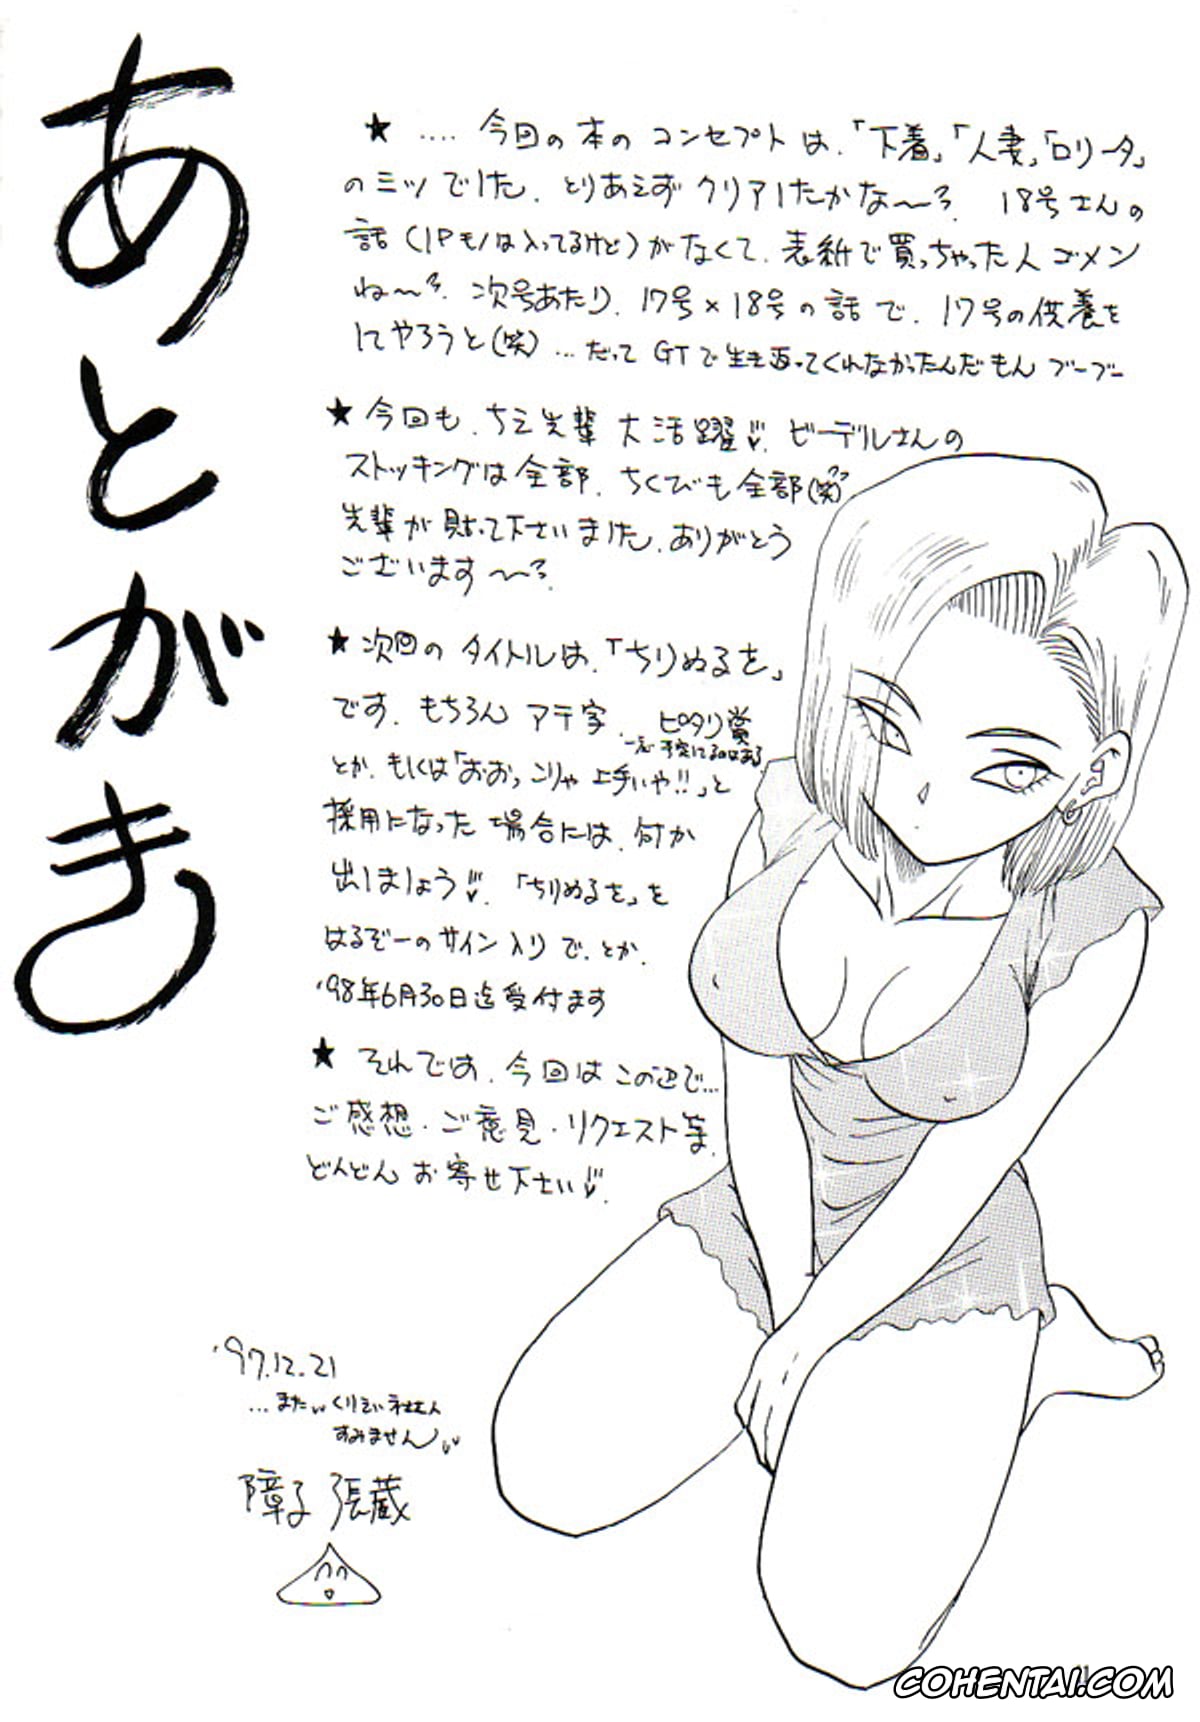 あとがき
★ .... 今回の本のコンセプトは、「下着」「人妻」「ロリータ」
のミツでした。とりあえずクリアしたかな〜? 18号さんの
話(1Pモノは入ってるけど)がなくて、表紙で買っちゃった人ゴメン
ね〜? 次号あたり、17号×18号の話で、17号の供養を
してやろうと(笑)…だってGTで生き返ってくれなかったんだもん ブーブー
★ 今回も、ちえ先輩 大活躍 ビーデルさんの
ストッキングは全部、ちくびも全部(笑)
先輩が貼って下さいました。ありがとう
ございます〜?
★ 次回のタイトルは、「ちりぬるを」
です。もちろんアテ字、ピタリ賞
一応予定してるのはある
とか、もしくは「おおっこりゃ上手いや!!」と
採用になった場合には、何か
出しましょう 「ちりぬるを」を
はるぞーのサイン入りで、とか、
'98年6月30日迄受付ます
★ それでは、今回はこの辺で…
ご感想・ご意見・リクエスト等
どんどんお寄せ下さい
'97.12.21
…また
すみません
障子張蔵
COHENTAI.COM